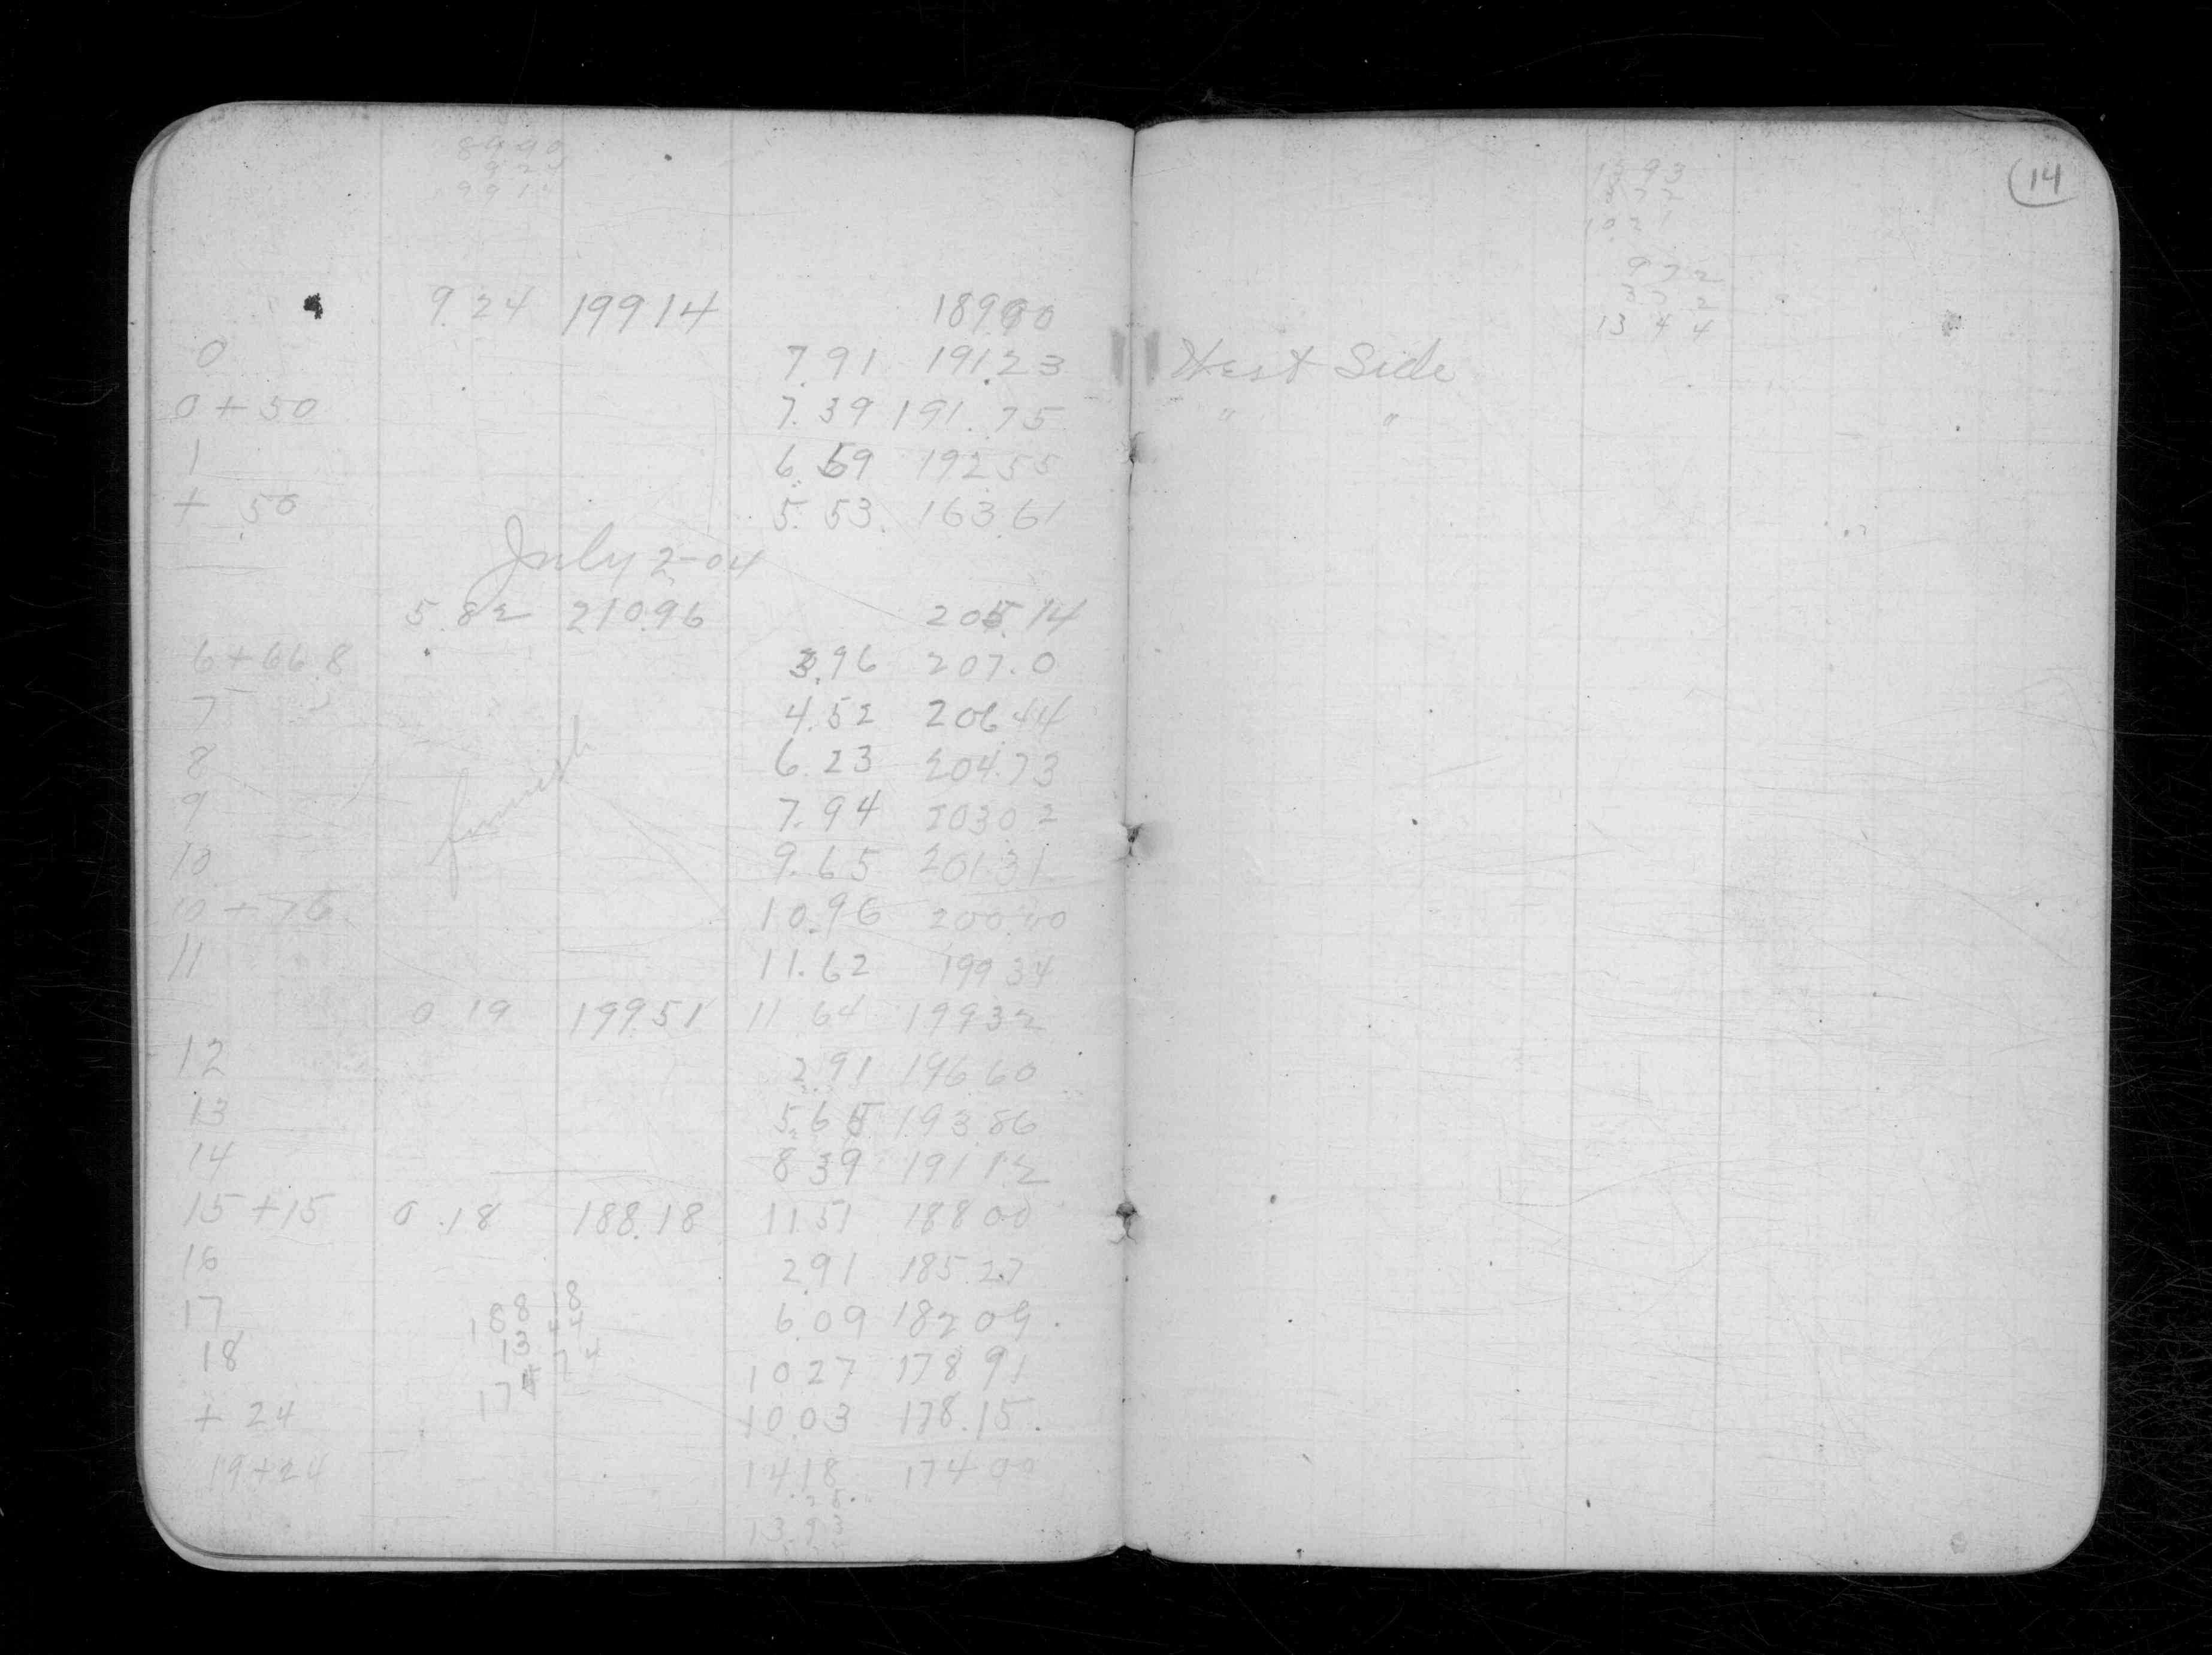 8990
924
9914
9.24 19914 189.90
0 7.91 191.23
0+50 7.39 191.75
1 6.59 192.55
+ 50 5.53 163.61
July 2-04
5.82 210.96 205.14
6+66.8 3.96 207.0
7 4.52 206.44
8 6.23 204.73
9 7.94 203.02
10 9.65 201.31
10+76 10.96 200.00
11 11.62 199 34
0 19 199.51 11.64 199 32
12 2.91 196 60
13 5.65 193.86
14 8 39 191 12
15+15 0.18 188.18 11.51 188 00
16 2.91 185 27
17 6.09 182 09.
18 10 27 178 91
+ 24 10.03 178.15.
19+24 14.18 174 00
188 18
13 44
174 74
13.93
14
15 93
10 21
9 72
3 72
13 4 4
West Side
" "